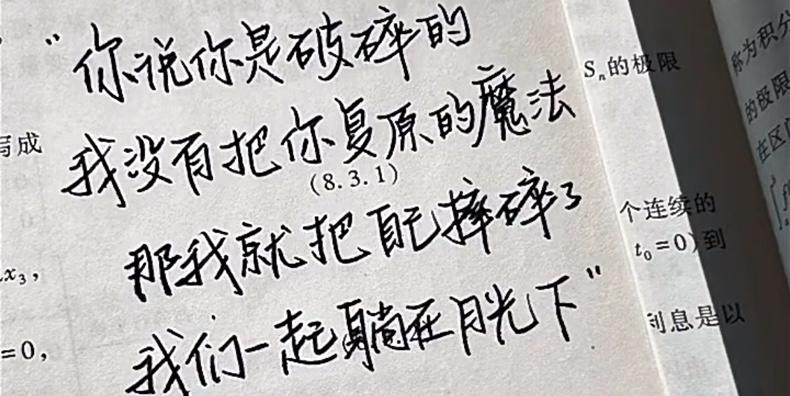 “你说你是破碎的
我没有把你复原的魔法
(8.3.1)
那我就把自己摔碎了
我们一起躺在月光下”
写成
x₃,
=0,
Sₙ的极限
个连续的
t₀=0)到
利息是以
称为积分
的极限
在区